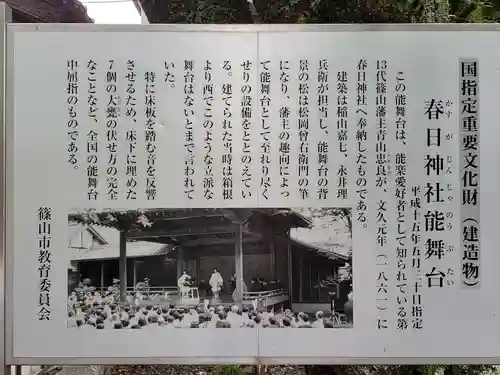 国指定重要文化財（建造物）
春日神社能舞台
かすがじんじゃのうぶたい
平成十五年五月三十日指定
この能舞台は、能楽愛好者として知られている第
13代篠山藩主青山忠良が、文久元年（一八六一）に
春日神社へ奉納したものである。
建築は稲山嘉七、永井理
兵衛が担当し、能舞台の背
景の松は松岡曾右衛門の筆
になり、藩主の趣向によっ
て能舞台として至れり尽く
せりの設備をととのえてい
る。建てられた当時は箱根
より西でこのような立派な
舞台はないとまで言われて
いた。
特に床板を踏む音を反響
させるため、床下に埋めた
7個の大甕の伏せ方の完全
なことなど、全国の能舞台
中屈指のものである。
篠山市教育委員会